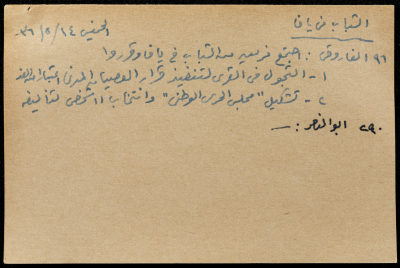 الشباب في يافا
الخميس ١٤/٥/٣٦-
٩٦ الفاروقي : اجتمع فريق من الشباب في يافا وقرروا
١- التجول في القرى لتنفيذ قرار العصيان المدني
٢- تشكيل "مجلس الحرس الوطني" وانتخاب ١١ شخص لتأليفه
٢٩٠ ابو النصر : —